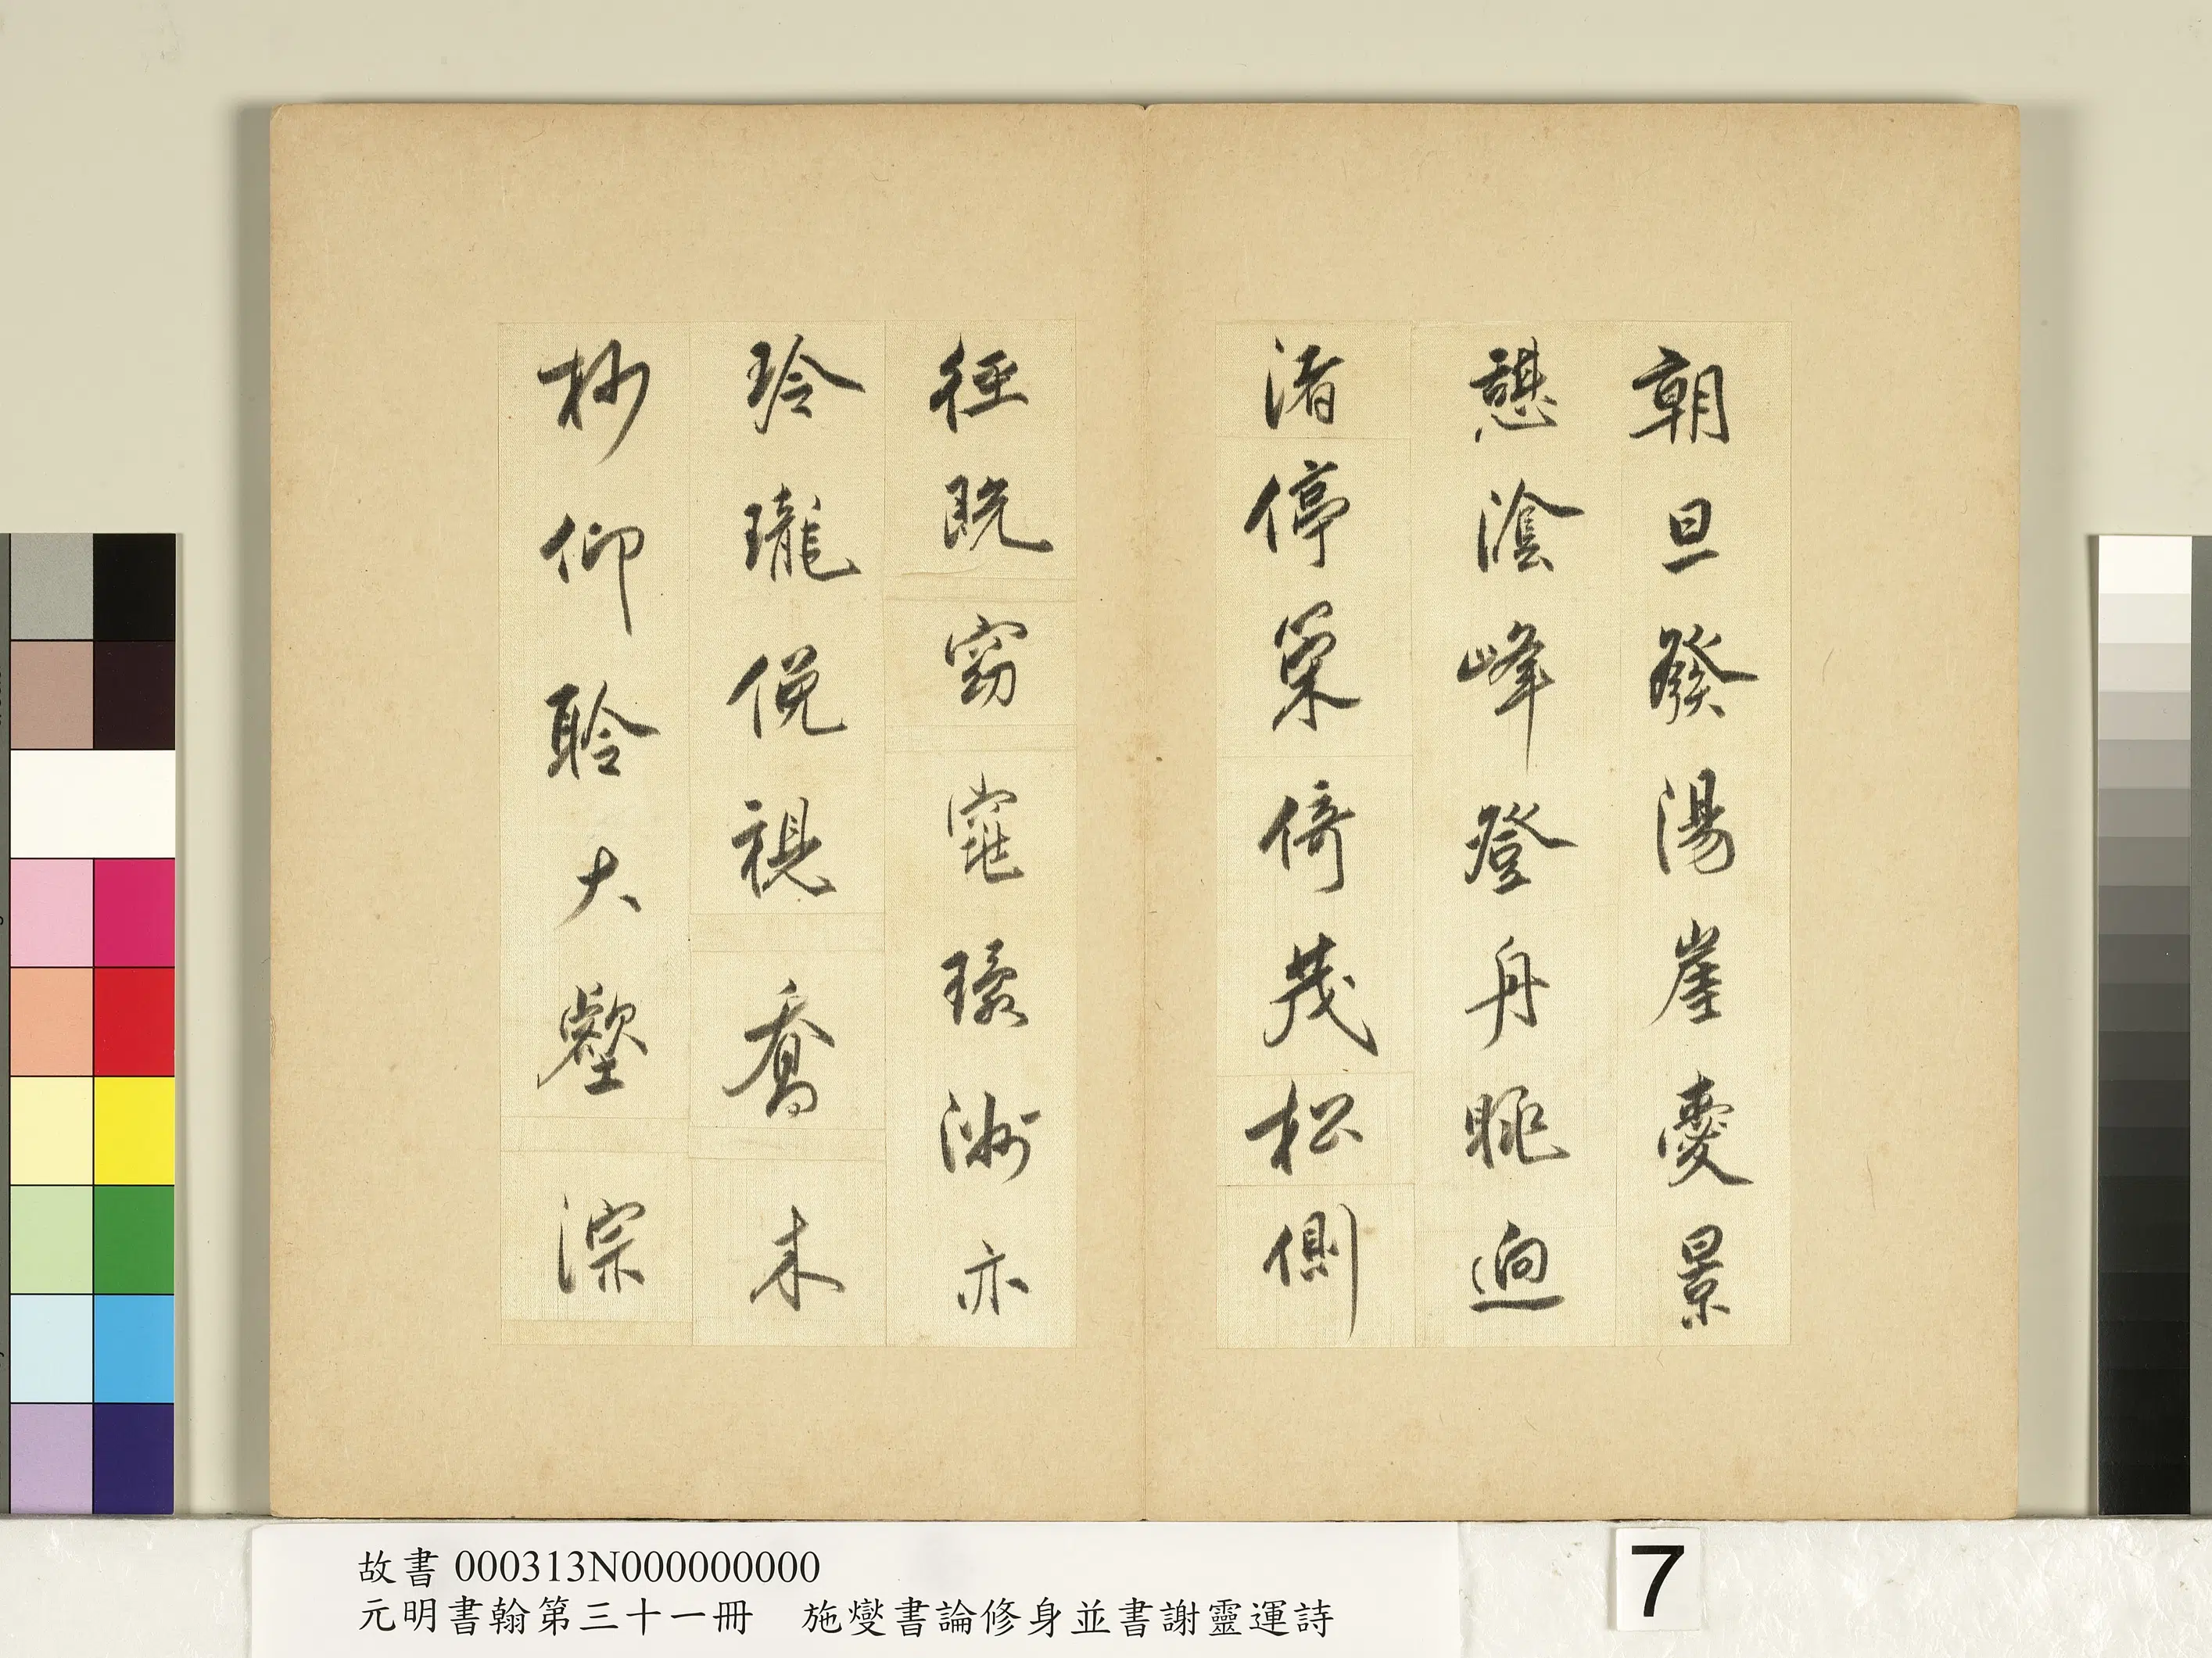 朝旦發陽崖憂景
憩陰峰登舟眺迥
渚停策倚茂松側
徑既窈窕環洲亦
玲瓏俛視喬木
杪仰聆大壑淙
故書 000313N000000000
元明書翰第三十一冊　施燮書論修身並書謝靈運詩
7